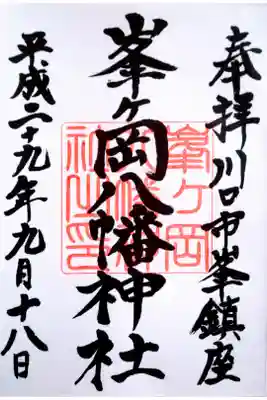 奉拝川口市峯鎮座
峯ヶ岡八幡神社
平成二十九年九月十八日
峯ヶ岡
八幡神
社之印